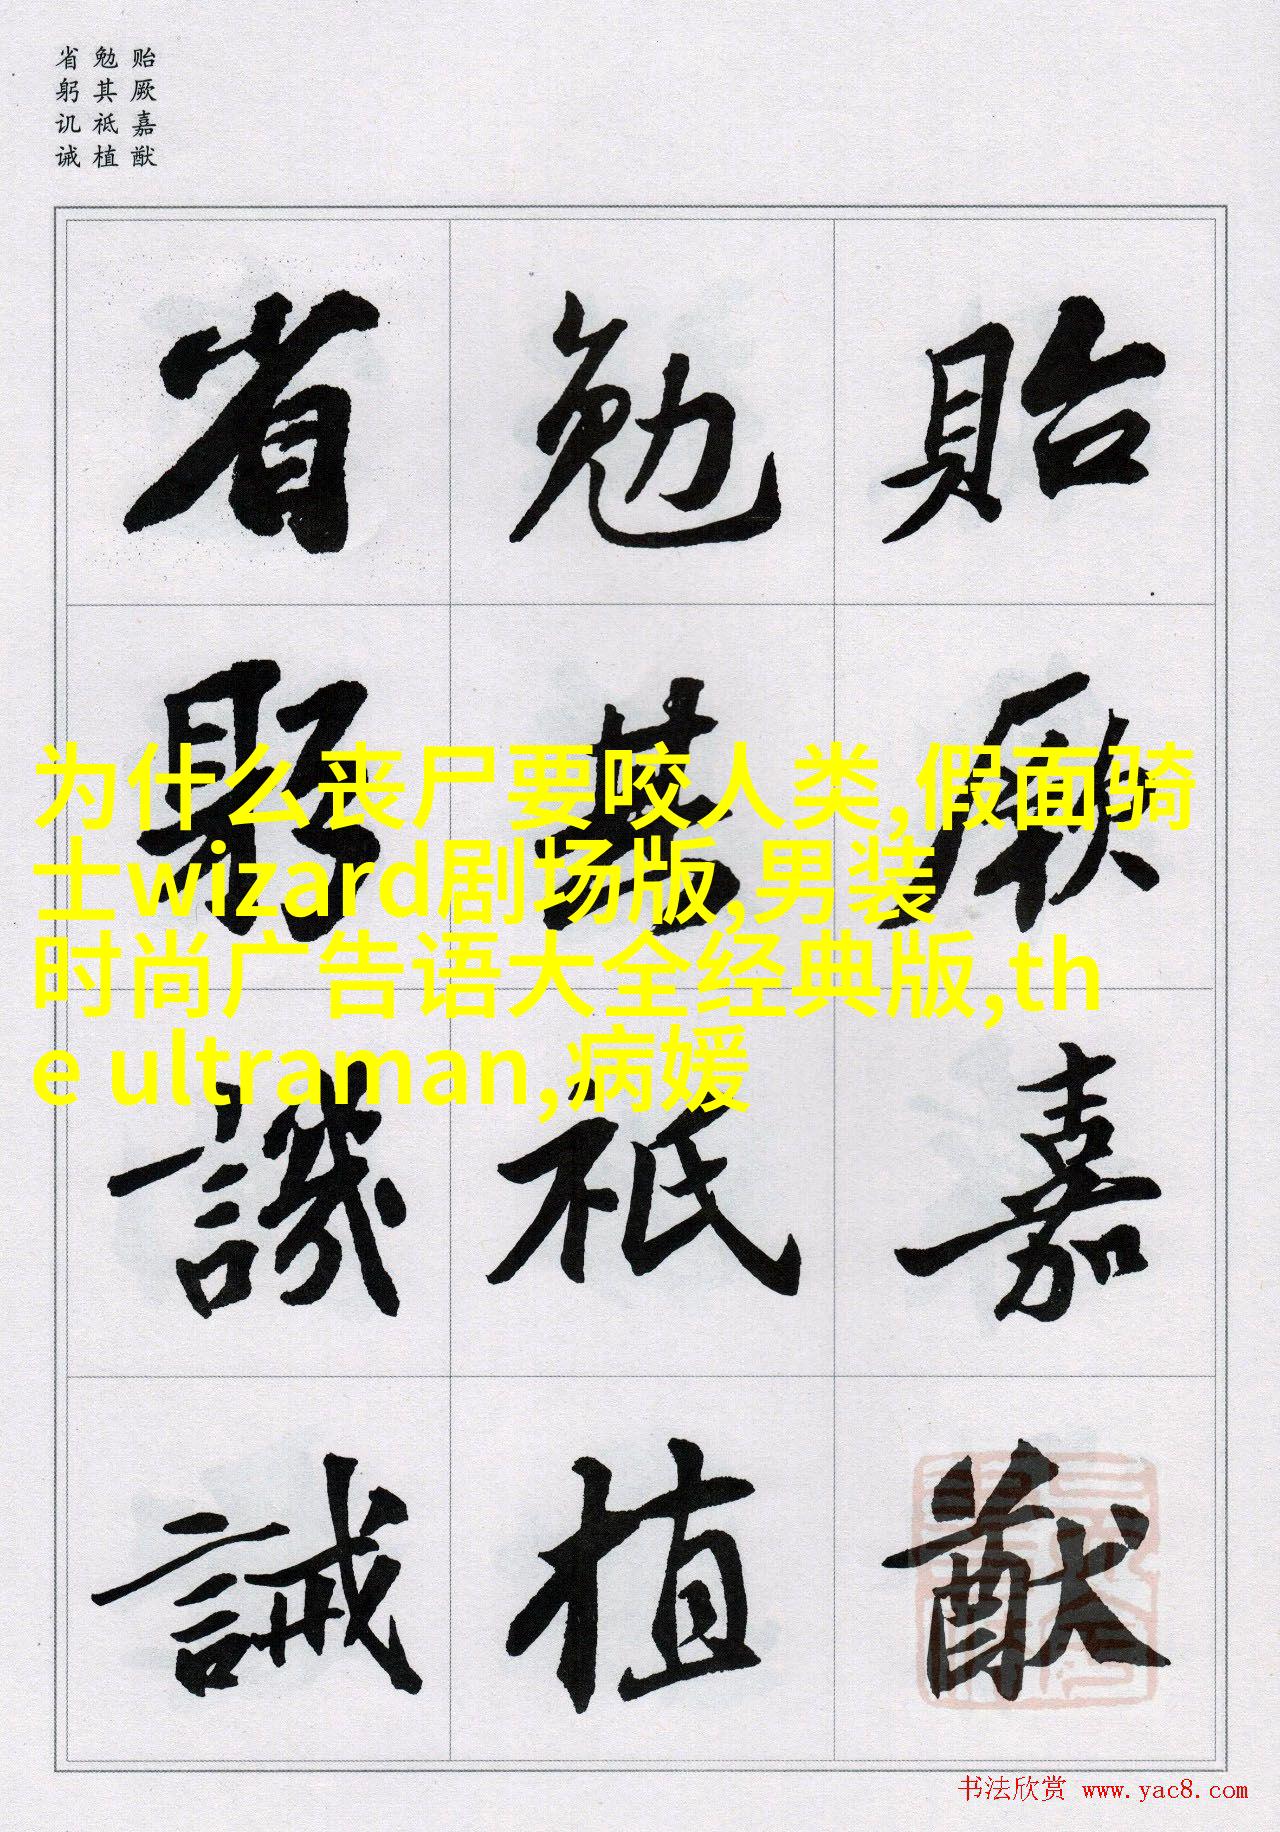 贻厥嘉猷
勉其祗植
省躬讥诫
貽厥嘉猷
勉其祗植
省躬譏誡
为什么丧尸要咬人类,假面骑
士wizard剧场版,男装
时尚广告语大全经典版,th
e ultraman,病媛
书法欣赏 www.yac8.com